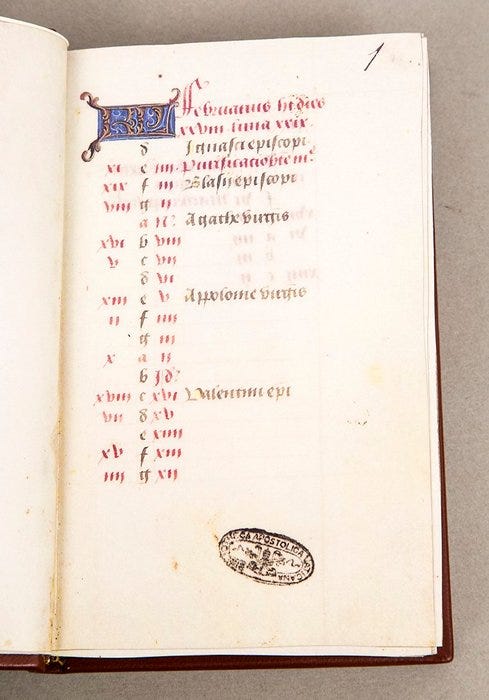 1
KL Februarius ht dies
xxviii luna xxix.
d Ignacii episcopi
xi e iiii Purificatio
xix f iii Blasii episcopi
viii g ii
a N Agathe virgis
xvi b viii
v c vii
d vi
xiii e v Appolonie virgis
ii f iiii
g iii
x a ii
b Jd
xviii c xvi Valentini epi
vii d xv
e xiiii
xv f xiii
iiii g xii
BIBLIOTHECA APOSTOLICA VATICANA